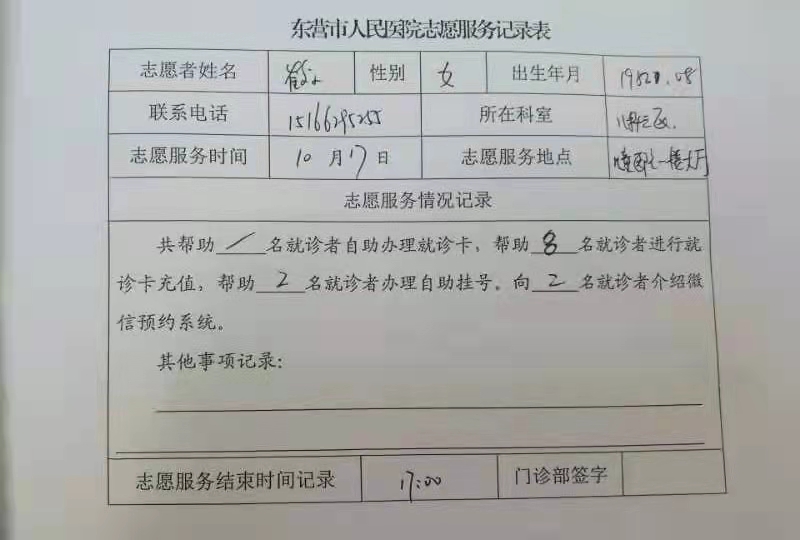 东营市人民医院志愿服务记录表
志愿者姓名 性别 女 出生年月
联系电话 15166295255 所在科室
志愿服务时间 10月17日 志愿服务地点
志愿服务情况记录
共帮助 / 名就诊者自助办理就诊卡，帮助 8 名就诊者进行就
诊卡充值，帮助 2 名就诊者办理自助挂号。向 2 名就诊者介绍微
信预约系统。
其他事项记录：
志愿服务结束时间记录 17:00 门诊部签字